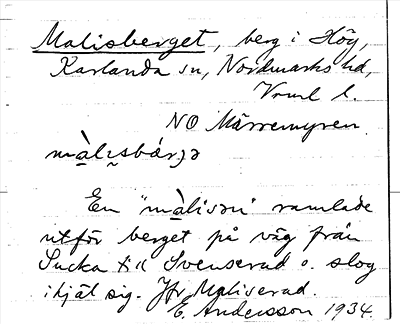 Malisberget, berg i Hög,
Karlanda sn, Nordmarks hd,
Vrml l.
NO Märremyren.
màlisbárjə
En "màlisən" ramlade
utför berget på väg från
Sucka till Svenserud o. slog
ihjäl sig. Jfr Maliserud.
E. Andersson 1934.